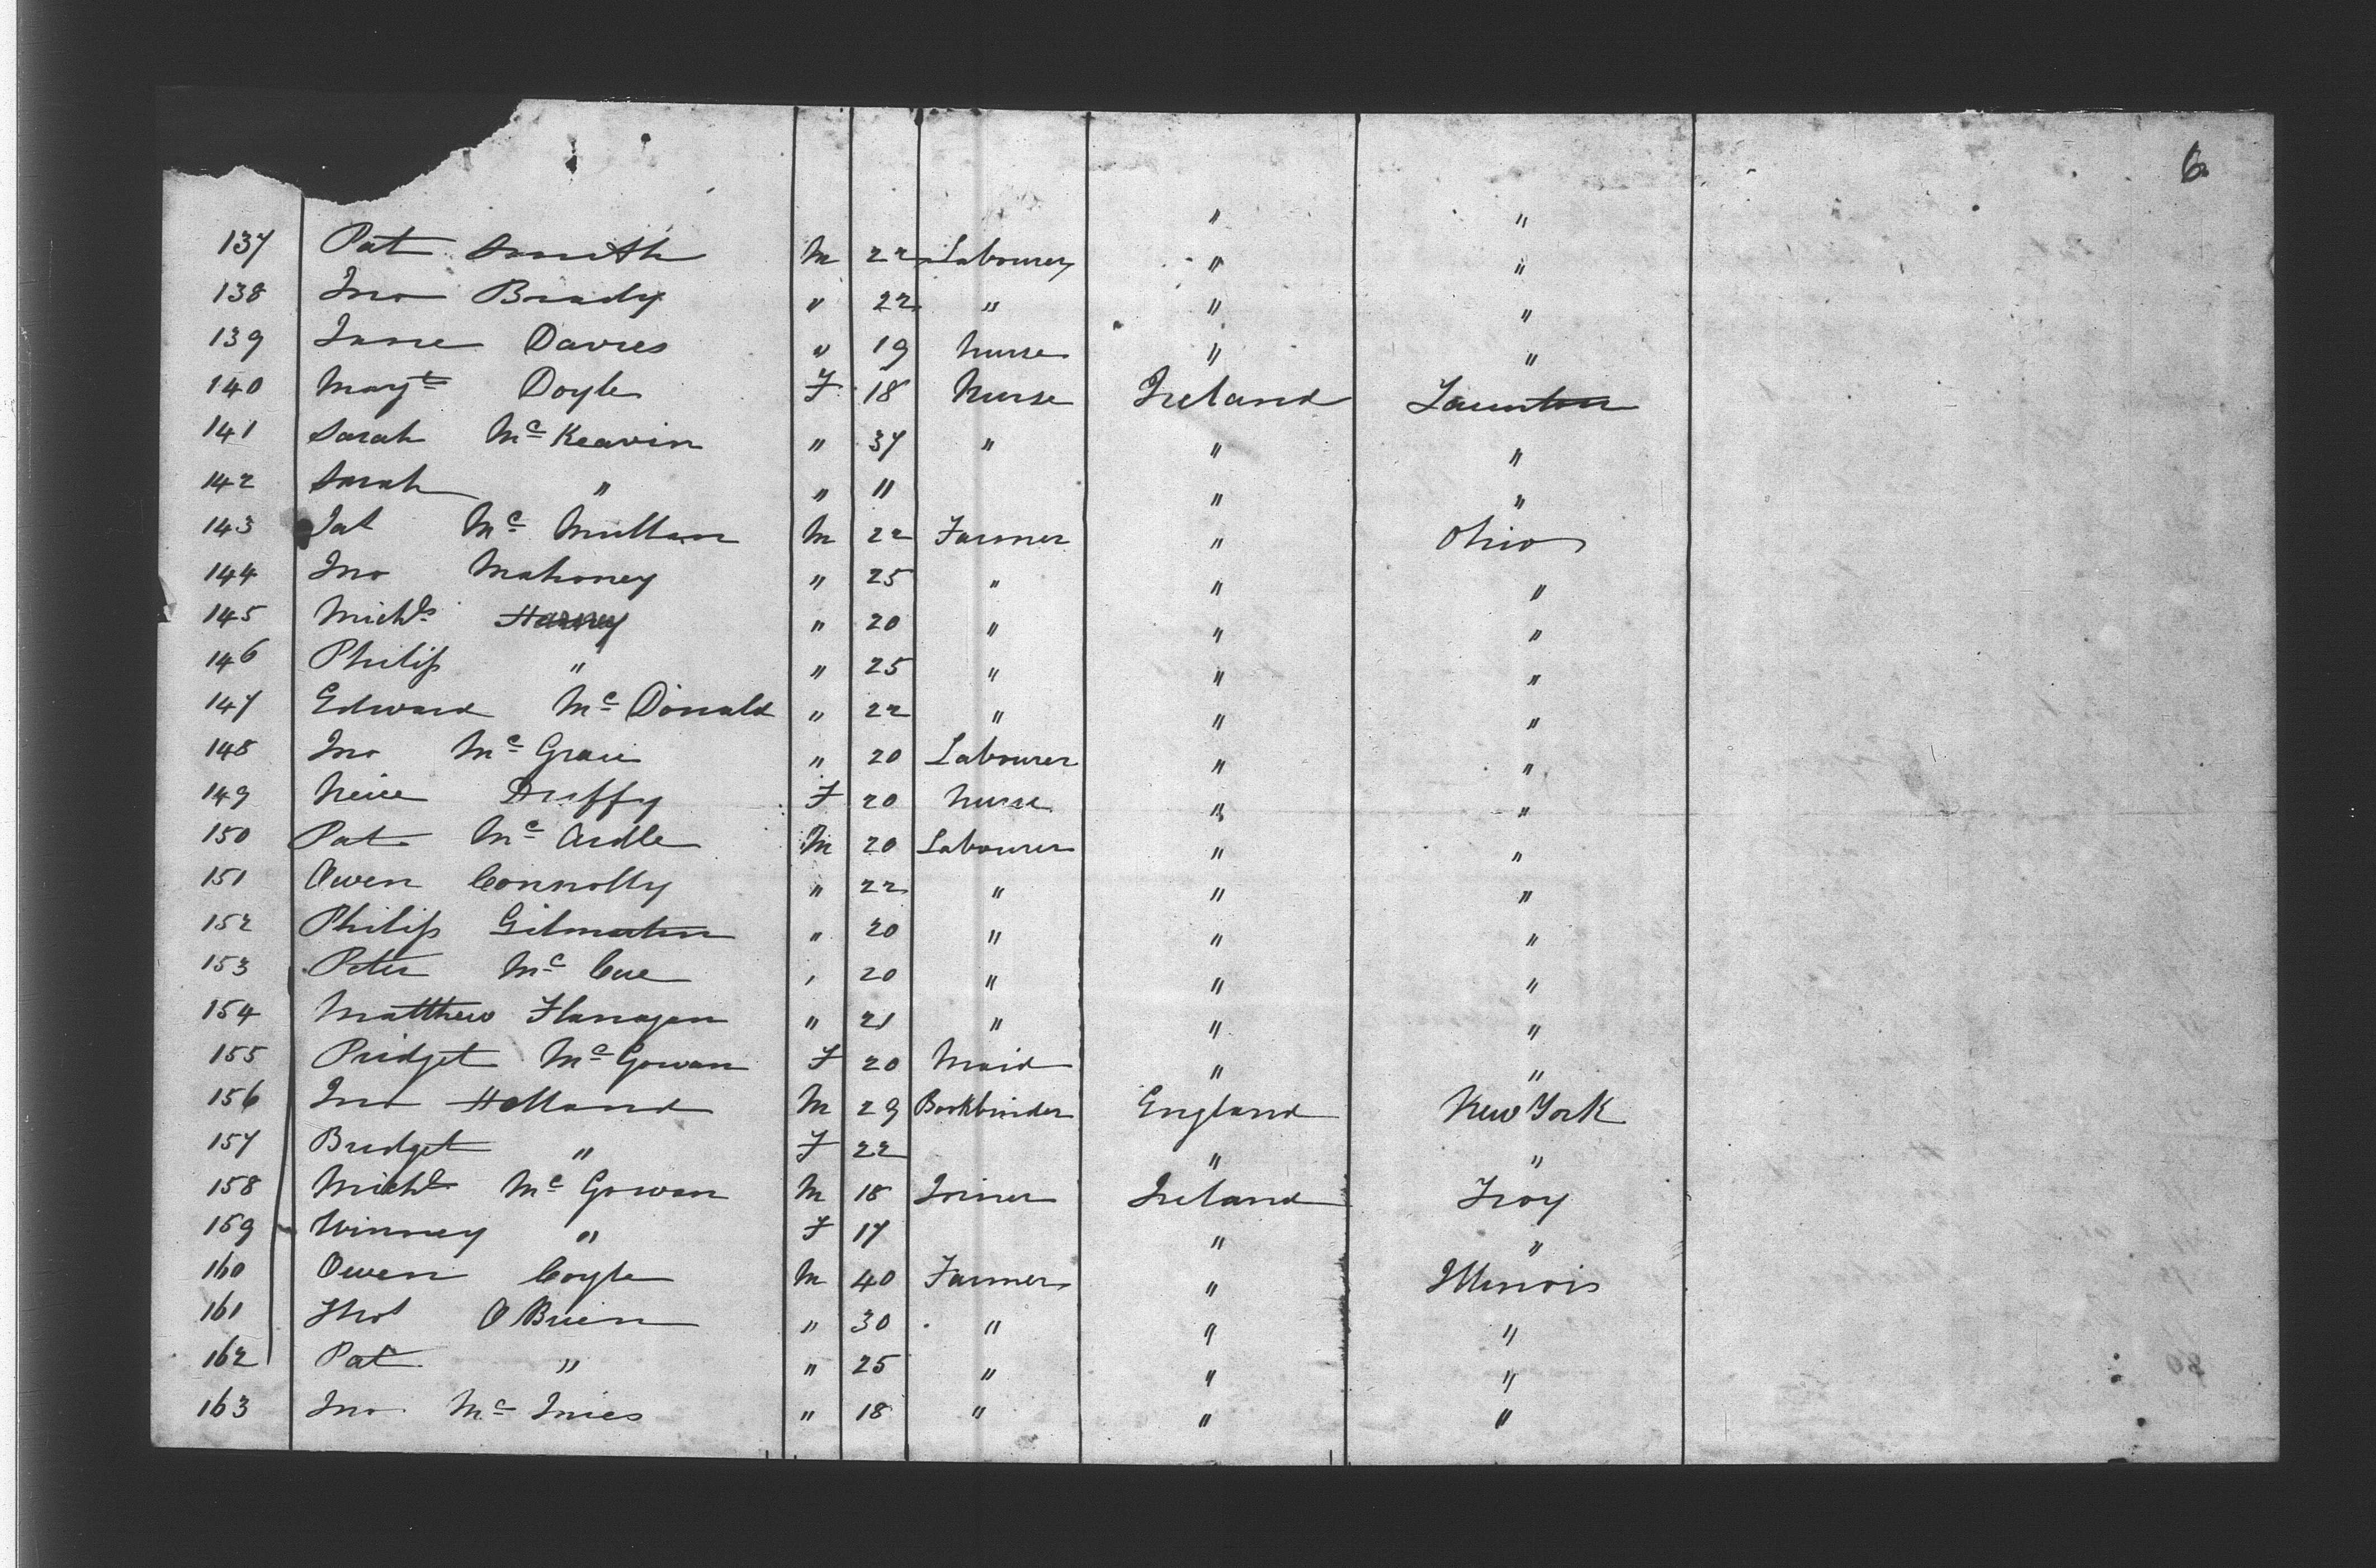 6
" "
137 Pat Smith M 22 Labourer " "
138 Jno Brady " 22 " " "
139 Jane Davies " 19 Nurse " "
140 Margt Doyle F 18 Nurse Ireland Taunton
141 Sarah Mc Keavin " 37 " " "
142 Sarah " " 11 " "
143 Pat Mc Mullan M 22 Farmer " Ohio
144 Jno Mahoney " 25 " " "
145 Michl Harney " 20 " " "
146 Philip " " 25 " " "
147 Edward Mc Donald " 22 " " "
148 Jno Mc " 20 Labourer " "
149 Duffy F 20 Nurse " "
150 Pat Mc Ardle M 20 Labourer " "
151 Owen Connolly " 22 " " "
152 Philip Gilmartin " 20 " " "
153 Peter Mc Cue " 20 " " "
154 Matthew Flanagan " 21 " " "
155 Bridget Mc Gowan F 20 Maid " "
156 Jno Holland M 29 Bookbinder England New York
157 Bridget " F 22 " "
158 Michl Mc Gowan M 18 Joiner Ireland Troy
159 Winney " F 17 " "
160 Owen Coyle M 40 Farmer " Illinois
161 Thos O Brien " 30 " " "
162 Pat " " 25 " " "
163 Jno Mc " 18 " " "